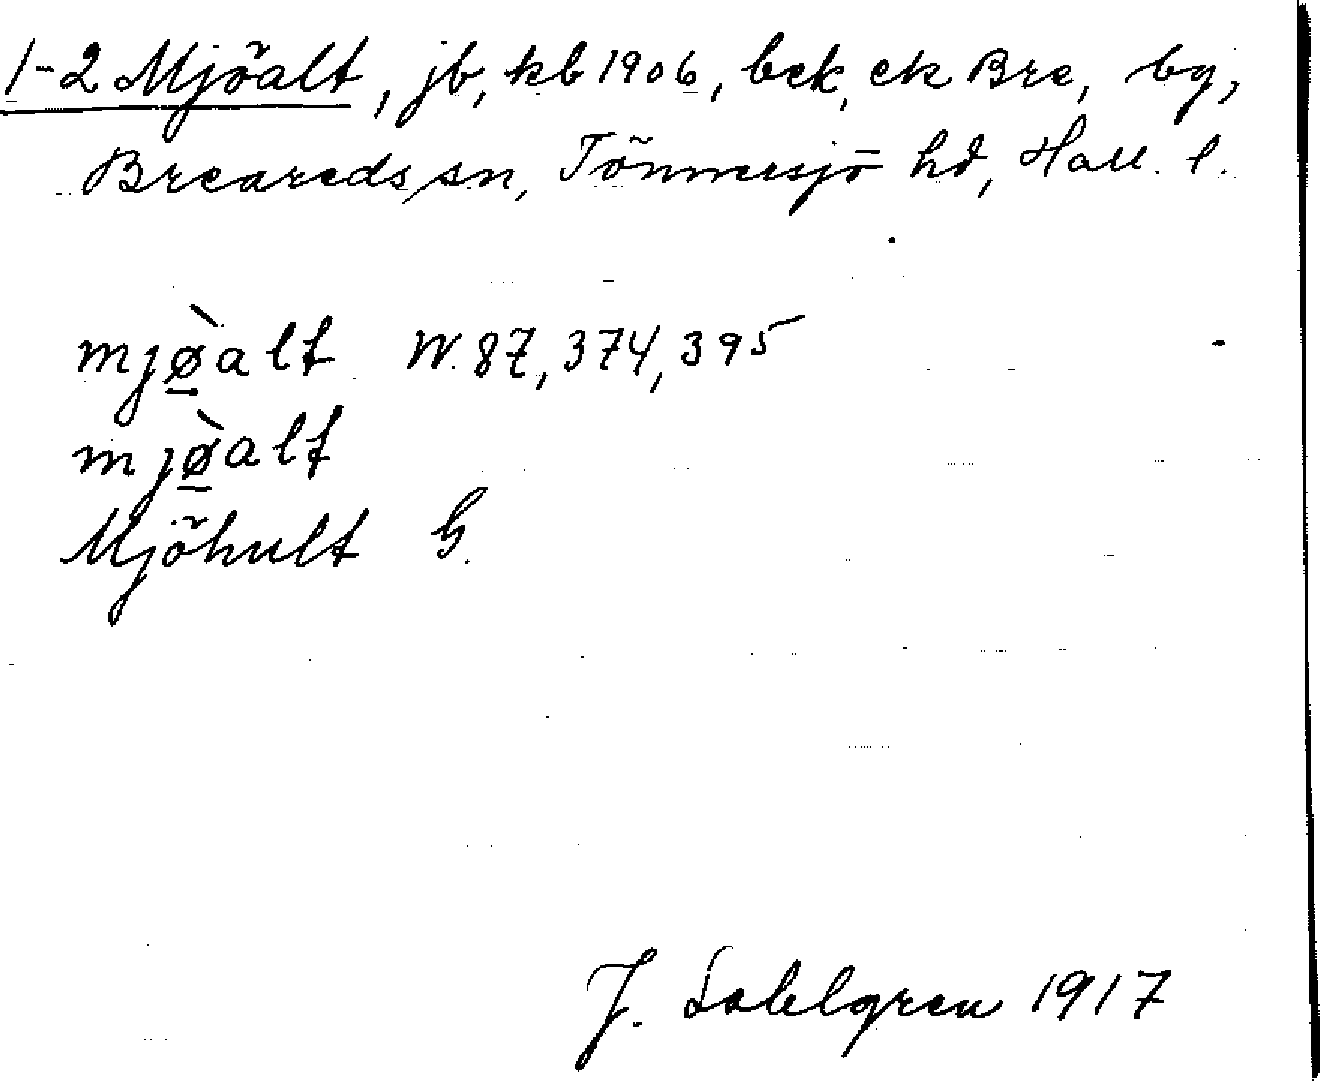 1-2 Mjöalt, jb, kb 1906, bek, ek Bre, by,
Breareds sn, Tönnersjö hd, Hall. l.
mjø̱̀alt W. 87, 374, 395
mjø̱̀alt
Mjöhult G.
J. Sahlgren 1917